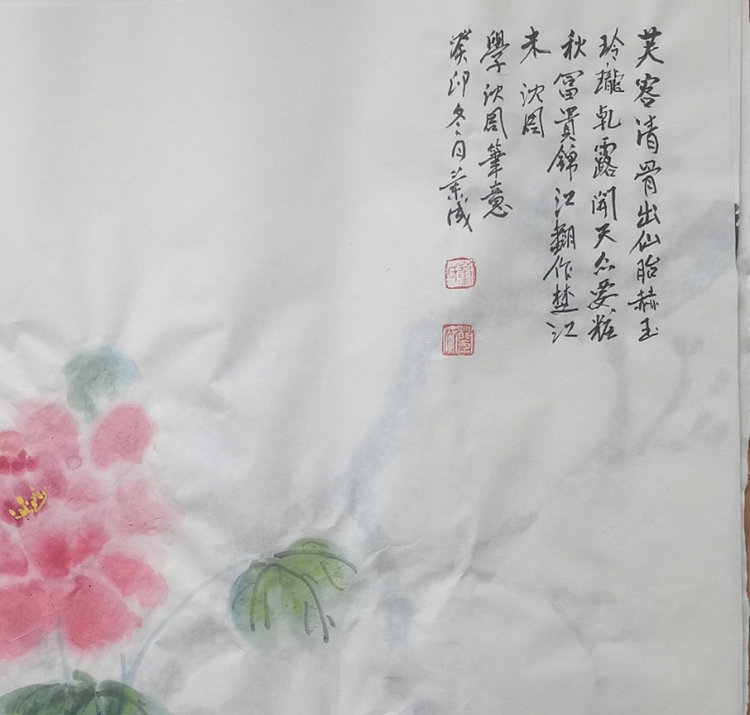 芙容清骨出仙胎赫玉
玲瓏乹露開天 妝
秋冨貴錦江翻作楚江
来 沈周
學沈周筆意
癸卯冬月 成